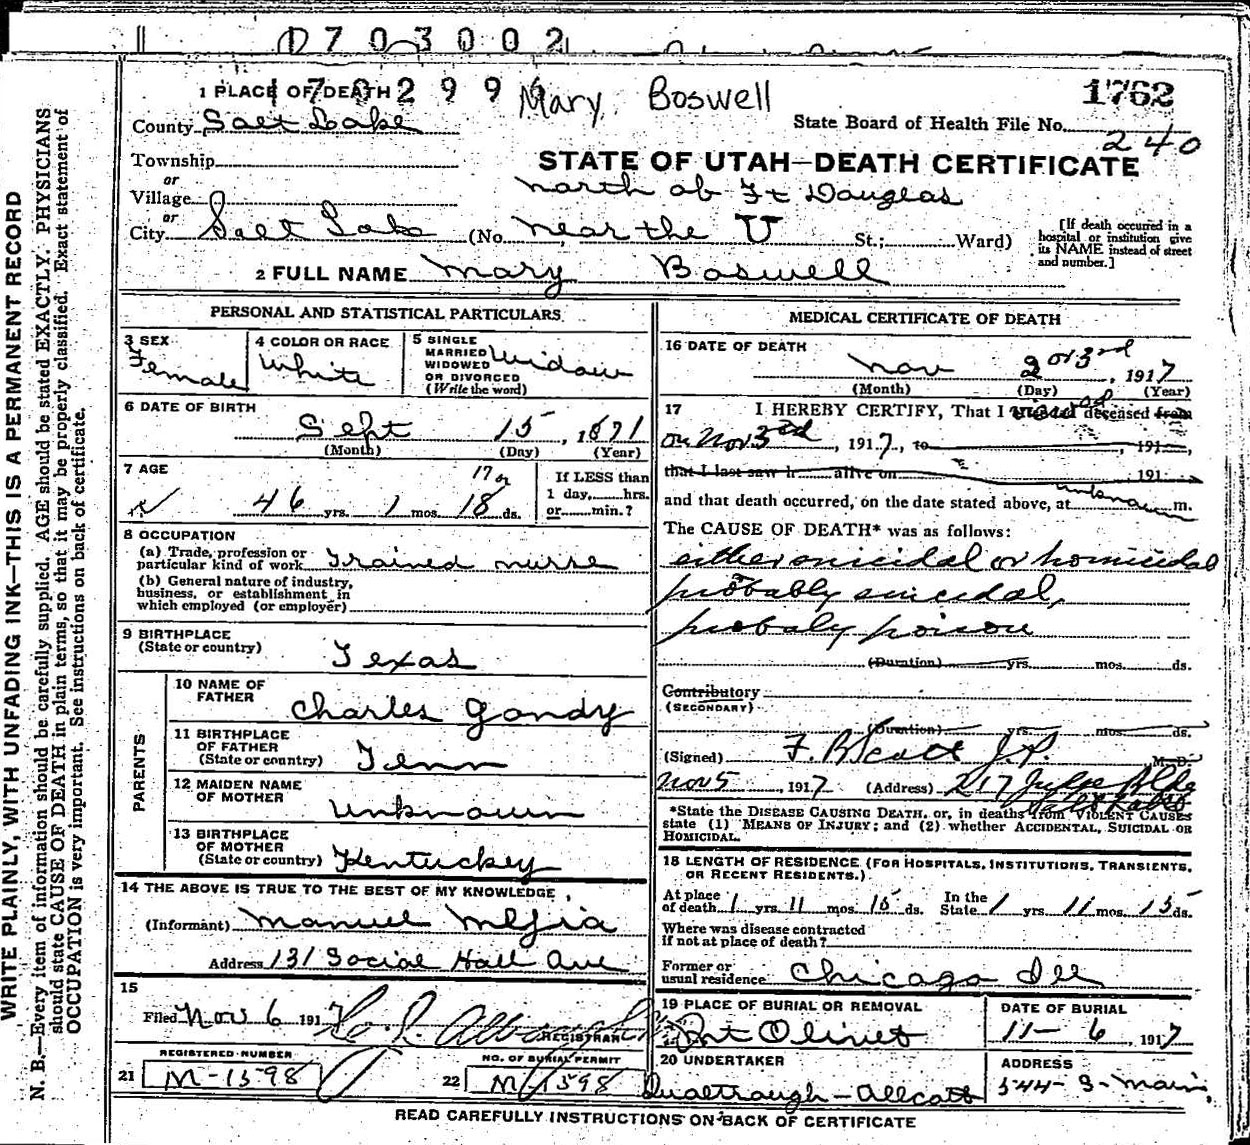 D703002
1 PLACE OF DEATH 170299
Mary Boswell
1762
County Salt Lake
State Board of Health File No. 240
Township
STATE OF UTAH—DEATH CERTIFICATE
or
Village
north of Ft Douglas
or
City Salt Lake (No. near the U St.; Ward)
[If death occurred in a hospital or institution give its NAME instead of street and number.]
2 FULL NAME Mary Boswell
PERSONAL AND STATISTICAL PARTICULARS
3 SEX Female
4 COLOR OR RACE White
5 SINGLE MARRIED WIDOWED OR DIVORCED (Write the word) Widow
6 DATE OF BIRTH
Sept 15, 1871
(Month) (Day) (Year)
7 AGE
17 or
46 yrs. 1 mos. 18 ds.
If LESS than 1 day, hrs. or min.?
8 OCCUPATION
(a) Trade, profession or particular kind of work Trained nurse
(b) General nature of industry, business, or establishment in which employed (or employer)
9 BIRTHPLACE
(State or country) Texas
PARENTS
10 NAME OF FATHER Charles Gandy
11 BIRTHPLACE OF FATHER (State or country) Tenn
12 MAIDEN NAME OF MOTHER Unknown
13 BIRTHPLACE OF MOTHER (State or country) Kentucky
14 THE ABOVE IS TRUE TO THE BEST OF MY KNOWLEDGE
(Informant) Manuel Mejia
Address 131 Social Hall Ave
15
Filed Nov 6 1917
REGISTRAR
REGISTERED NUMBER
21 M-1598
NO. OF BURIAL PERMIT
22 M-1598
MEDICAL CERTIFICATE OF DEATH
16 DATE OF DEATH
Nov 2 or 3rd, 1917
(Month) (Day) (Year)
17 I HEREBY CERTIFY, That I deceased from
on Nov 3rd, 1917, to , 191 ,
that I last saw h alive on , 191
and that death occurred, on the date stated above, at unknown m.
The CAUSE OF DEATH* was as follows:
either suicidal or homicidal
probably suicidal,
probaly poison
(Duration) yrs. mos. ds.
Contributory
(SECONDARY)
(Duration) yrs. mos. ds.
(Signed) F. B. Scott J.P. M. D.
Nov 5, 1917 (Address) 217
*State the DISEASE CAUSING DEATH, or, in deaths from VIOLENT CAUSES state (1) MEANS OF INJURY; and (2) whether ACCIDENTAL, SUICIDAL OR HOMICIDAL.
18 LENGTH OF RESIDENCE (FOR HOSPITALS, INSTITUTIONS, TRANSIENTS, OR RECENT RESIDENTS.)
At place of death 1 yrs 11 mos. 15 ds. In the State 1 yrs 11 mos. 15 ds.
Where was disease contracted if not at place of death?
Former or usual residence Chicago Ill
19 PLACE OF BURIAL OR REMOVAL
Mt Olivet
DATE OF BURIAL
11-6, 1917
20 UNDERTAKER
ADDRESS
544 S- Main
READ CAREFULLY INSTRUCTIONS ON BACK OF CERTIFICATE
WRITE PLAINLY, WITH UNFADING INK—THIS IS A PERMANENT RECORD
N. B.—Every item of information should be carefully supplied. AGE should be stated EXACTLY. PHYSICIANS
should state CAUSE OF DEATH in plain terms, so that it may be properly classified. Exact statement of
OCCUPATION is very important. See instructions on back of certificate.